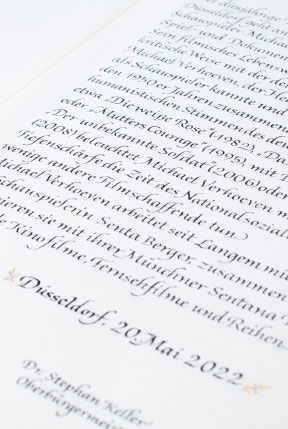 diesjährige
Düsseldorf geht an
Schauspieler Michael
Spiel- und Dokument
Sein filmisches Lebenswe
kritische Weise mit der de
Michael Verhoeven, der He
als Schauspieler kannte und
den 1950er Jahren zusammen
humanistischen Stimmen des deu
etwa „Die weiße Rose" (1982), „Da
oder „Mutters Courage" (1995), mit D
„Der unbekannte Soldat" (2006) oder
(2008) beleuchtet Michael Verhoeven mi
Tiefenschärfe die Zeit des Nationalsozial
wenige andere Filmschaffende tun.
Michael Verhoeven arbeitet seit Langem mit
Schauspielerin Senta Berger, zusammen
ieren sie mit ihrer Münchner Sentana F
Kinofilme, Fernsehfilme und Reihen.
Düsseldorf, 20. Mai 2022
Dr. Stephan Keller
Oberbürgermeist